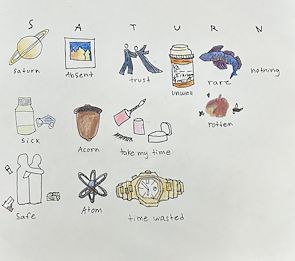 S A T U R N
Saturn Absent trust unwell rare nothing
rotten
Sick Acorn take my time
Safe Atom time wasted